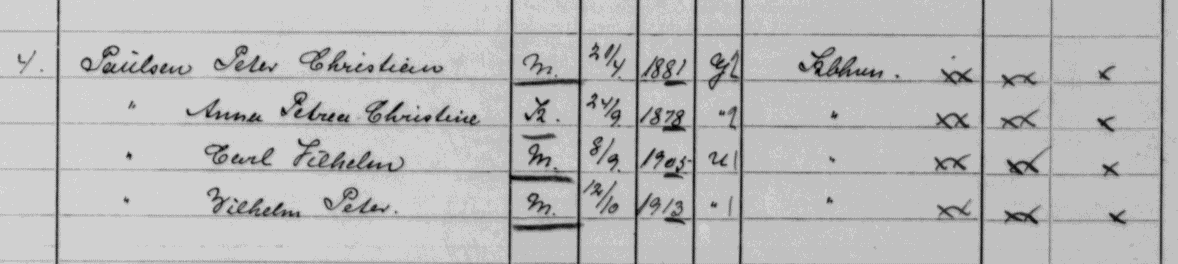 4. Paulsen Peter Christian M. 21/4. 1881 gl Kbhvn. xx xx x
" Anna Petrea Christine K. 24/9. 1878 " " xx xx x
" Carl Vilhelm M. 8/9. 1905 u " xx xx x
" Wilhelm Peter. M. 12/10 1913 " " xx xx x